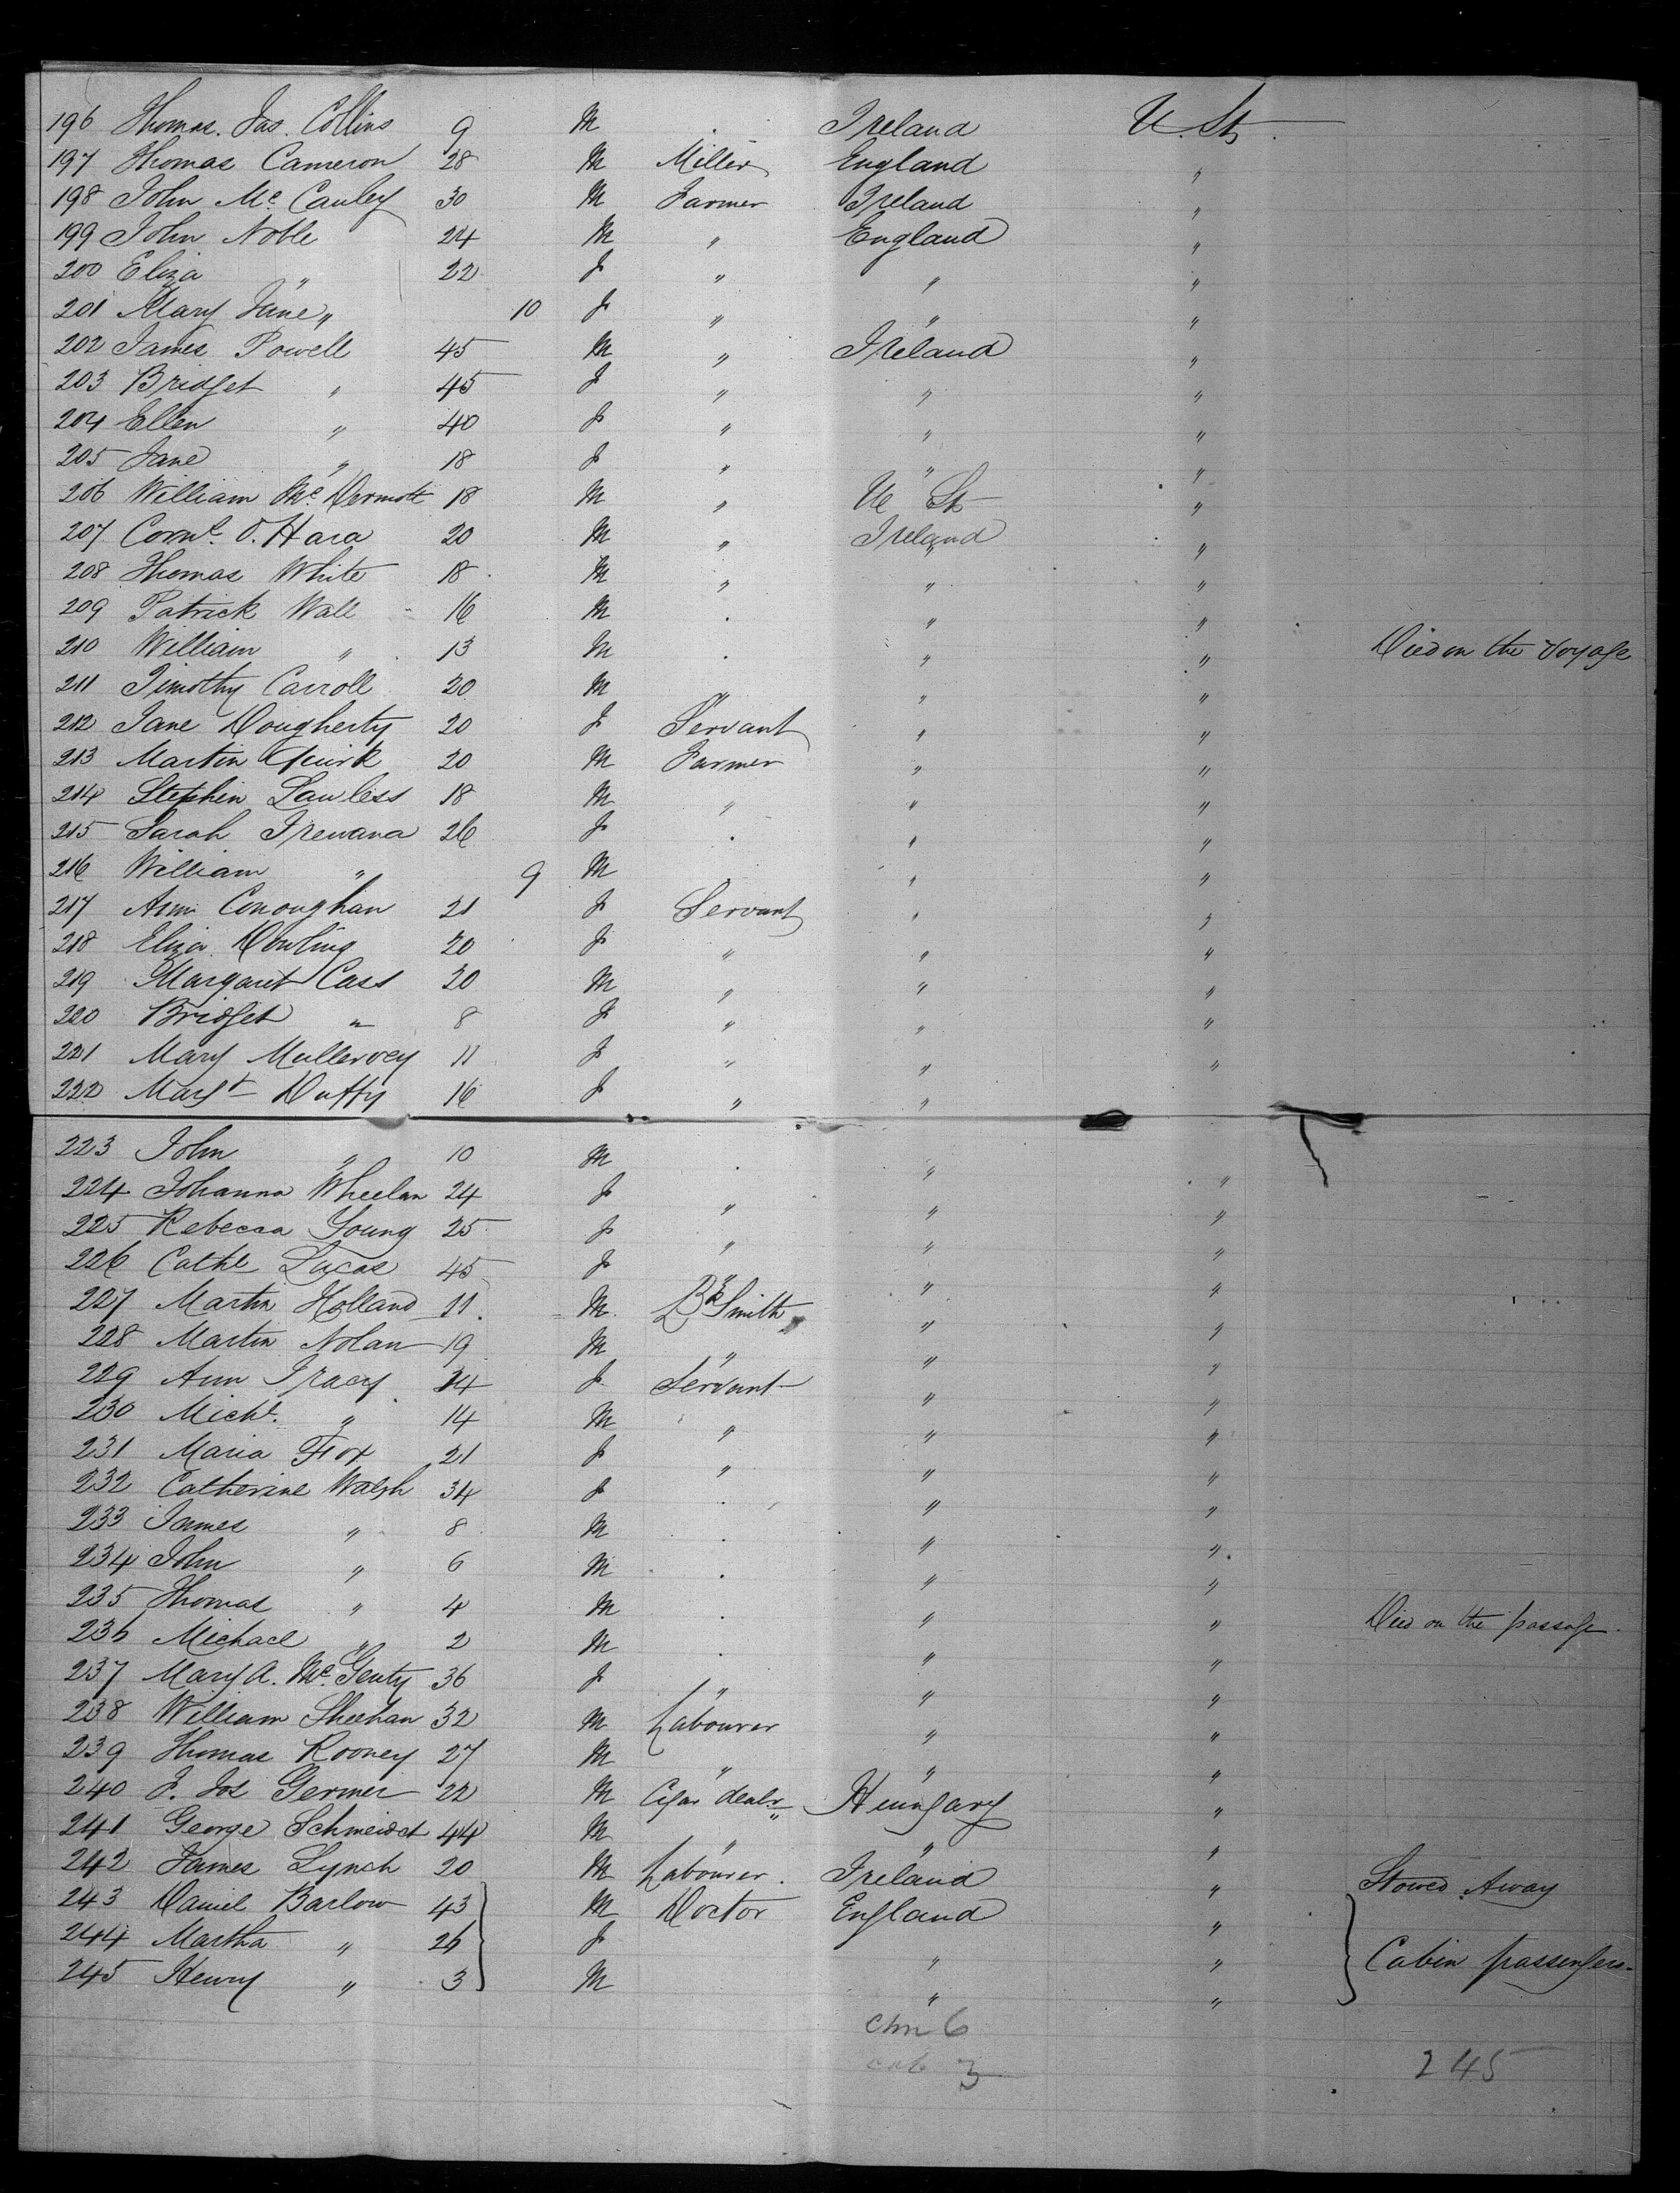 196 Thomas. Jas. Collins 9 M . Ireland U. St.
197 Thomas Cameron 28 M Miller England "
198 John Mc Cauley 30 M Farmer Ireland "
199 John Noble 24 M " England "
200 Eliza " 22 f " " "
201 Mary Jane " 10 f " " "
202 James Powell 45 M " Ireland "
203 Bridget " 45 f " " "
204 Ellen " 40 f " " "
205 Jane " 18 f " " "
206 William Mc Dermott 18 M " U St "
207 Cornl. O. Hara 20 M " Ireland "
208 Thomas White 18 M " " "
209 Patrick Wall 16 M . " "
210 William " 13 M . " " Died on the Voyage
211 Timothy Carroll 20 M " " "
212 Jane Dougherty 20 f Servant " "
213 Martin Quirk 20 M Farmer " "
214 Stephen Lawless 18 M " " "
215 Sarah 26 f . " "
216 William " 9 M " "
217 Ann Conoughan 21 f Servant " "
218 Eliza Dowling 20 f " " "
219 Margaret Cass 30 M " " "
220 Bridget " 8 f " " "
221 Mary Mullervey 11 f " " "
222 Margt Duffy 16 f " "
223 John " 10 M . " "
224 Johanna Wheelan 24 f " " "
225 Rebecca Young 25 f " " "
226 Cathe Lucas 45 f " " "
227 Martin Holland 11 M Bk Smith " "
228 Martin Nolan 19 M " " "
229 Ann Tracy 34 f Servant " "
230 Michl. " 14 M " " "
231 Maria Fox 21 f " " "
232 Catherine Walsh 34 f . " "
233 James " 8 M . " "
234 John " 6 M . " "
235 Thomas " 4 M . " " Died on the passage.
236 Michael " 2 M . " "
237 Mary A. Mc. Genty 36 f " " "
238 William Sheehan 32 M Labourer " "
239 Thomas Rooney 27 M " " "
240 J. Jos Germer 22 M Cigar dealr Hungary "
241 George Schmeidct 44 M " " "
242 James Lynch 20 M Labourer. Ireland " Stowed Away
243 Daniel Barlow 43 M Doctor England "
244 Martha " 26 f " " Cabin passengers.
245 Henry " 3 M " "
chn 6
cab 3 245